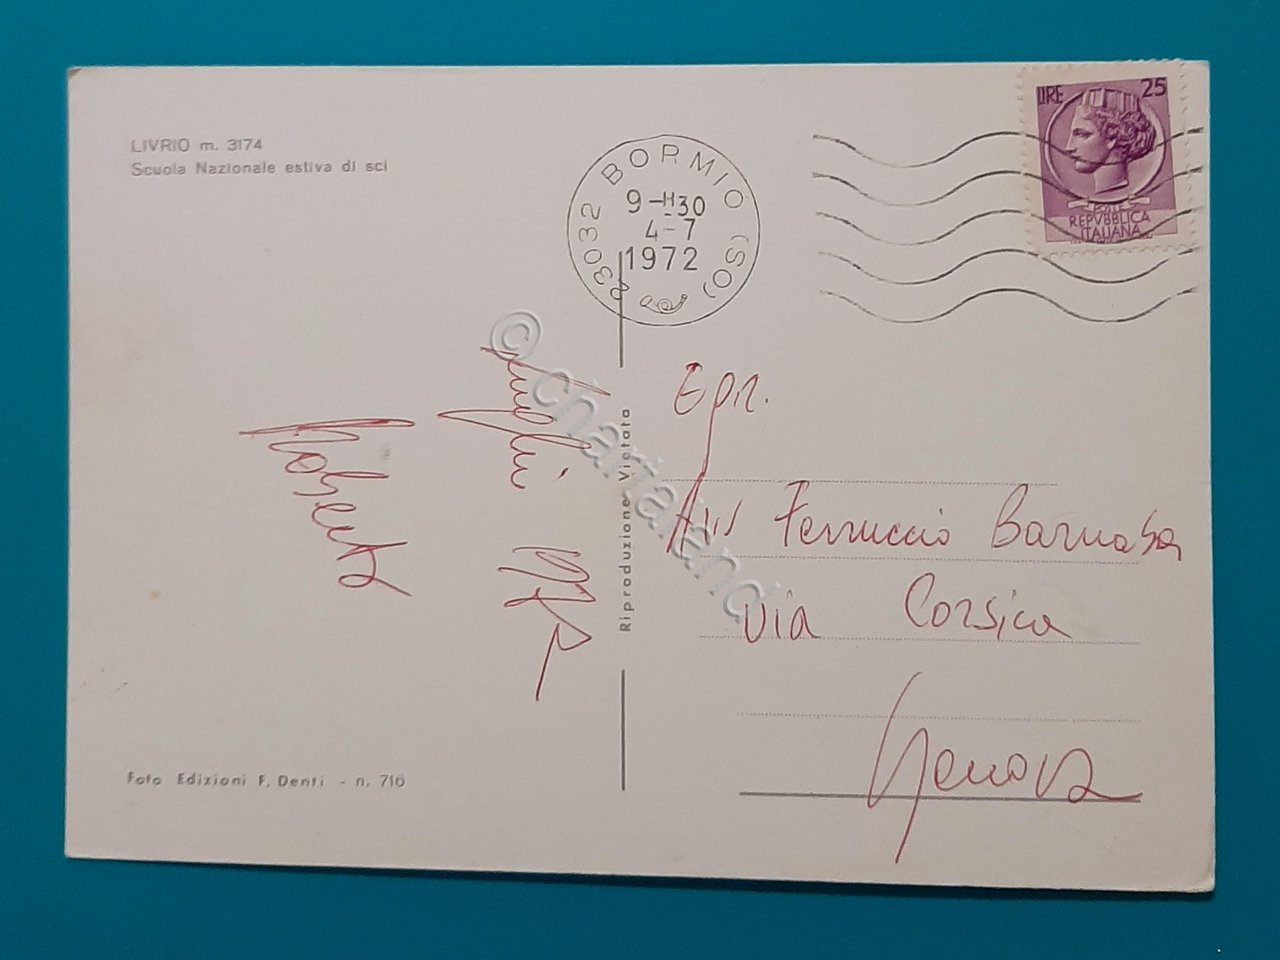 LIVRIO m. 3174
Scuola Nazionale estiva di sci
23032 BORMIO (SO)
9-H30
4-7
1972
LIRE 25
POSTE
REPVBBLICA
ITALIANA
© charialand
Riproduzione Vietata
Egr.
Ferruccio Barnaba
Via Corsica
Genova
Roberto
Foto Edizioni F. Denti - n. 716